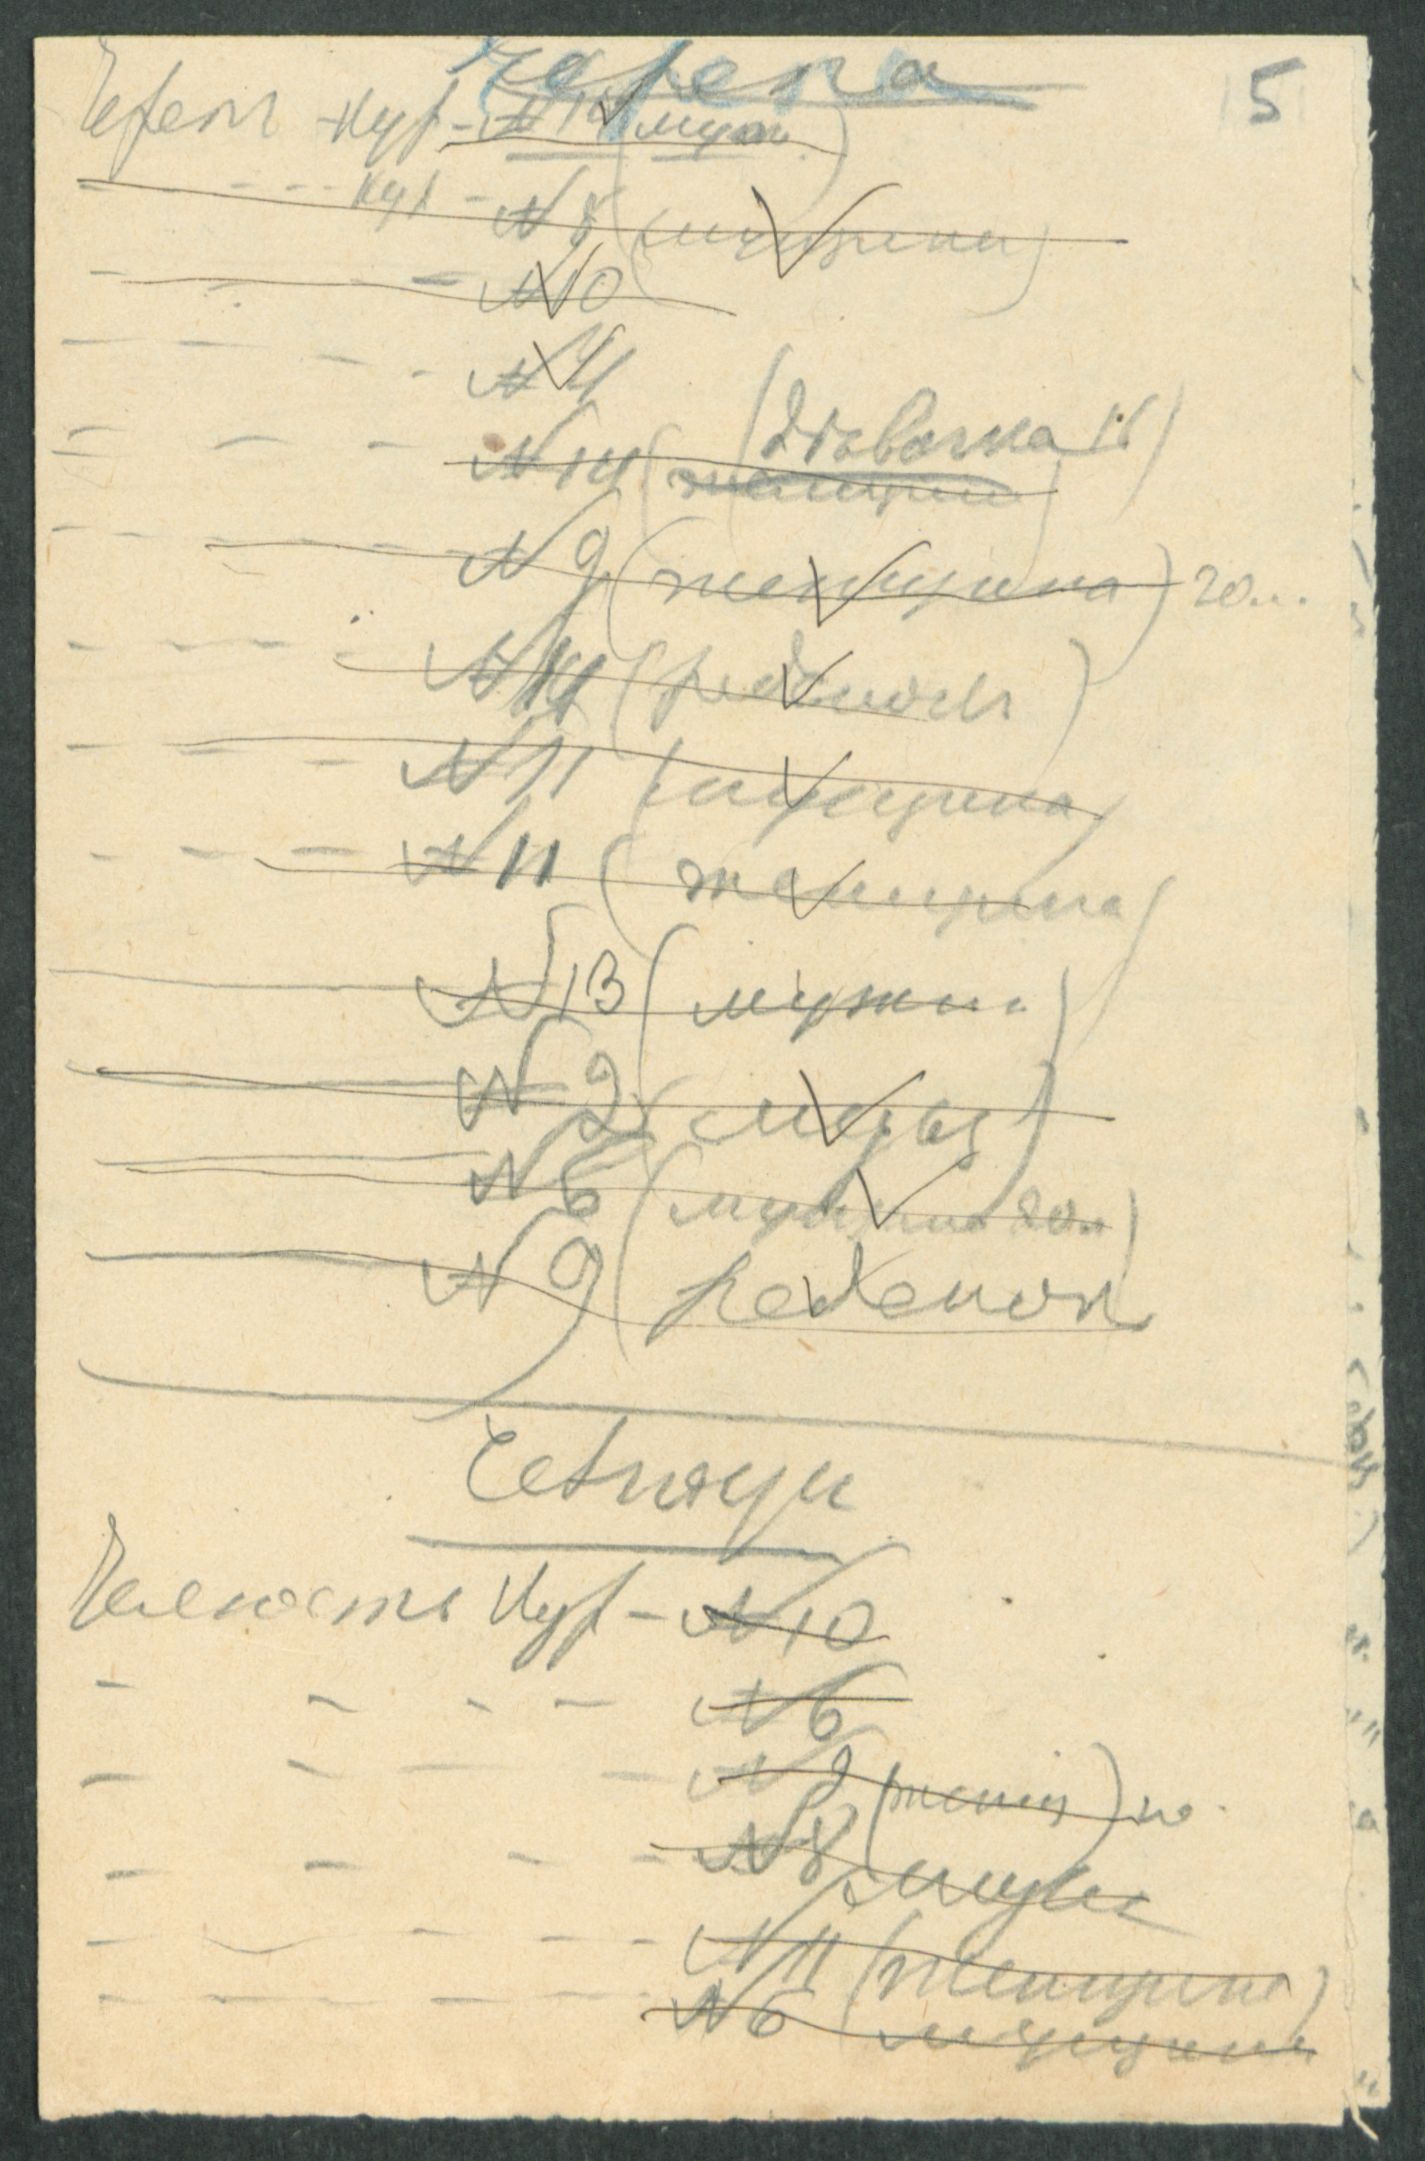 Черепа
5
Череп Кур - №12 (муж)
- - - Кур - №8 (мужчина)
- - - №10
- - - - №4
(девочка 16)
- - - №14 (женщина)
- - - №9 (женщина) 20
- - - - №14 (ребенок)
- - - №11 (мужчина)
- - - №11 (женщина)
№13 (мужчи
№2 (мужч)
№6 (мужчина 20
№9 (ребенок
Челюсть Кур - №10
- - - - №6
- - - - №9 (женщ)
- - - - №8 мужч
- - - - №11 (женщина)
- - - - №6 мужчина